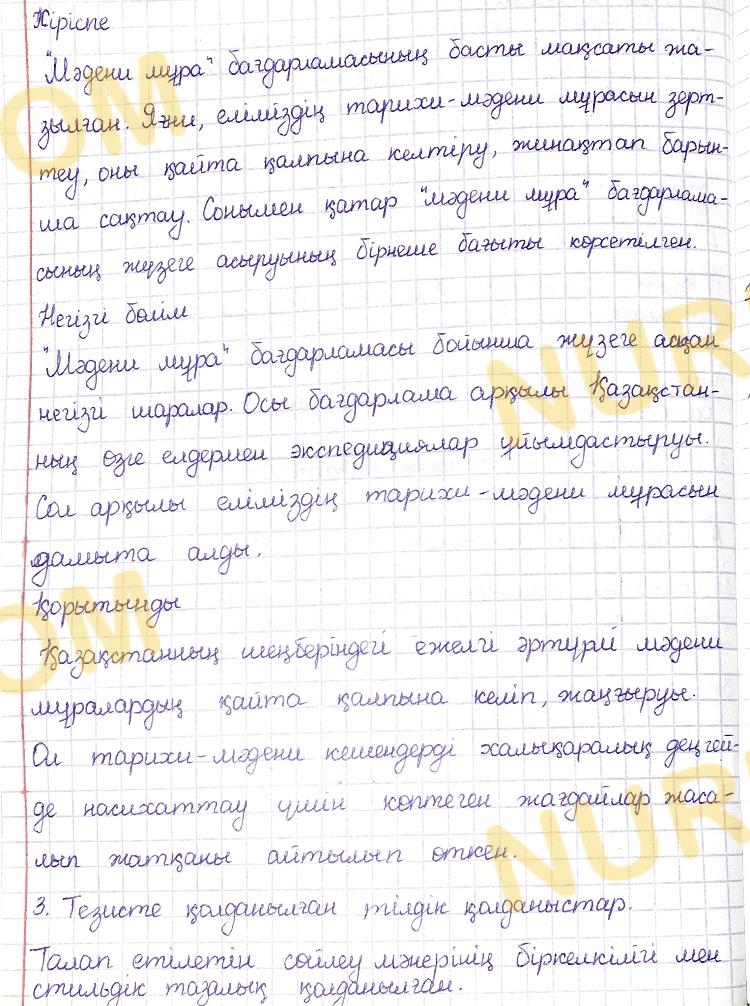 Кіріспе
"Мәдени мұра" бағдарламасының басты мақсаты жа-
зылған. Яғни, еліміздің тарихи-мәдени мұрасын зерт-
теу, оны қайта қалпына келтіру, жинақтап барын-
ша сақтау. Сонымен қатар "мәдени мұра" бағдарлама-
сының жүзеге асыруының бірнеше бағыты көрсетілген.
Негізгі бөлім
"Мәдени мұра" бағдарламасы бойынша жүзеге асқан
негізгі шаралар. Осы бағдарлама арқылы Қазақстан-
ның өзге елдермен экспедициялар ұйымдастыруы.
Сол арқылы еліміздің тарихи-мәдени мұрасын
дамыта алды.
Қорытынды
Қазақстанның шеңберіндегі ежелгі әртүрлі мәдени
мұралардың қайта қалпына келіп, жаңғыруы.
Ол тарихи-мәдени кешендерді халықаралық деңгей-
де насихаттау үшін көптеген жағдайлар жаса-
лып жатқаны айтылып өткен.
3. Тезисте қолданылған тілдік қолданыстар.
Талап етілетін сөйлеу мәнерінің біркелкілігі мен
стильдік тазалық қолданылған.
OM
NUR
OM
NUR